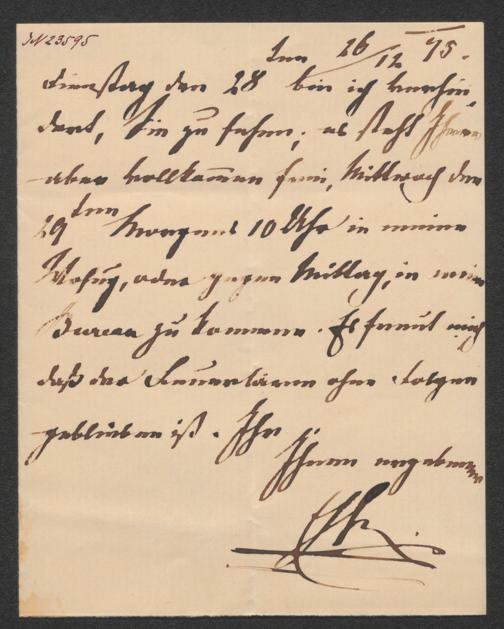 IN 23595
den 26/12 75.
Dienstag den 28 bin ich verhin
dert, Sie zu sehen; es steht Ihnen
aber vollkommen frei, Mittwoch den
29ten Morgens 10 Uhr in meine
Wohnug, oder gegen Mittag, in mein
Bureau zu kommen. Es freut mich
daß der Feuerlärm ohne Folgen
geblieben ist. Ihr
Ihnen ergebener